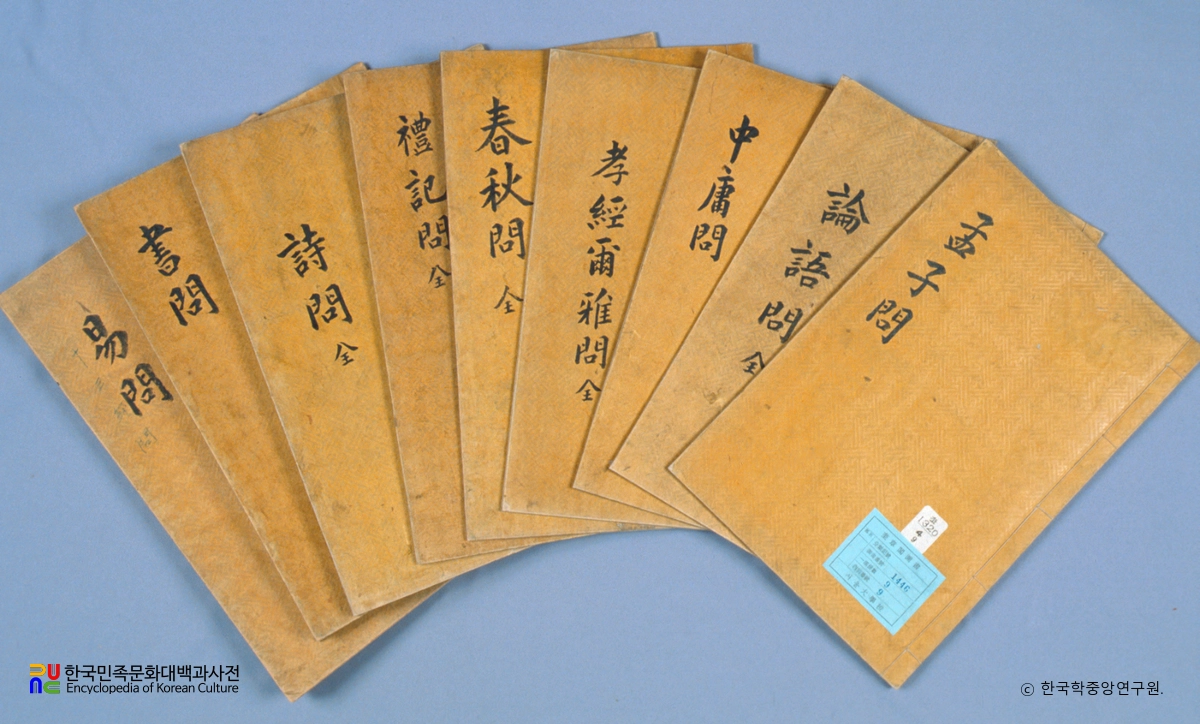 易問
書問
詩問 全
禮記問 全
春秋問 全
孝經爾雅問 全
中庸問
論語問 全
孟子問
1320
4
9
1446
9
9
한국민족문화대백과사전
Encyclopedia of Korean Culture
ⓒ 한국학중앙연구원.